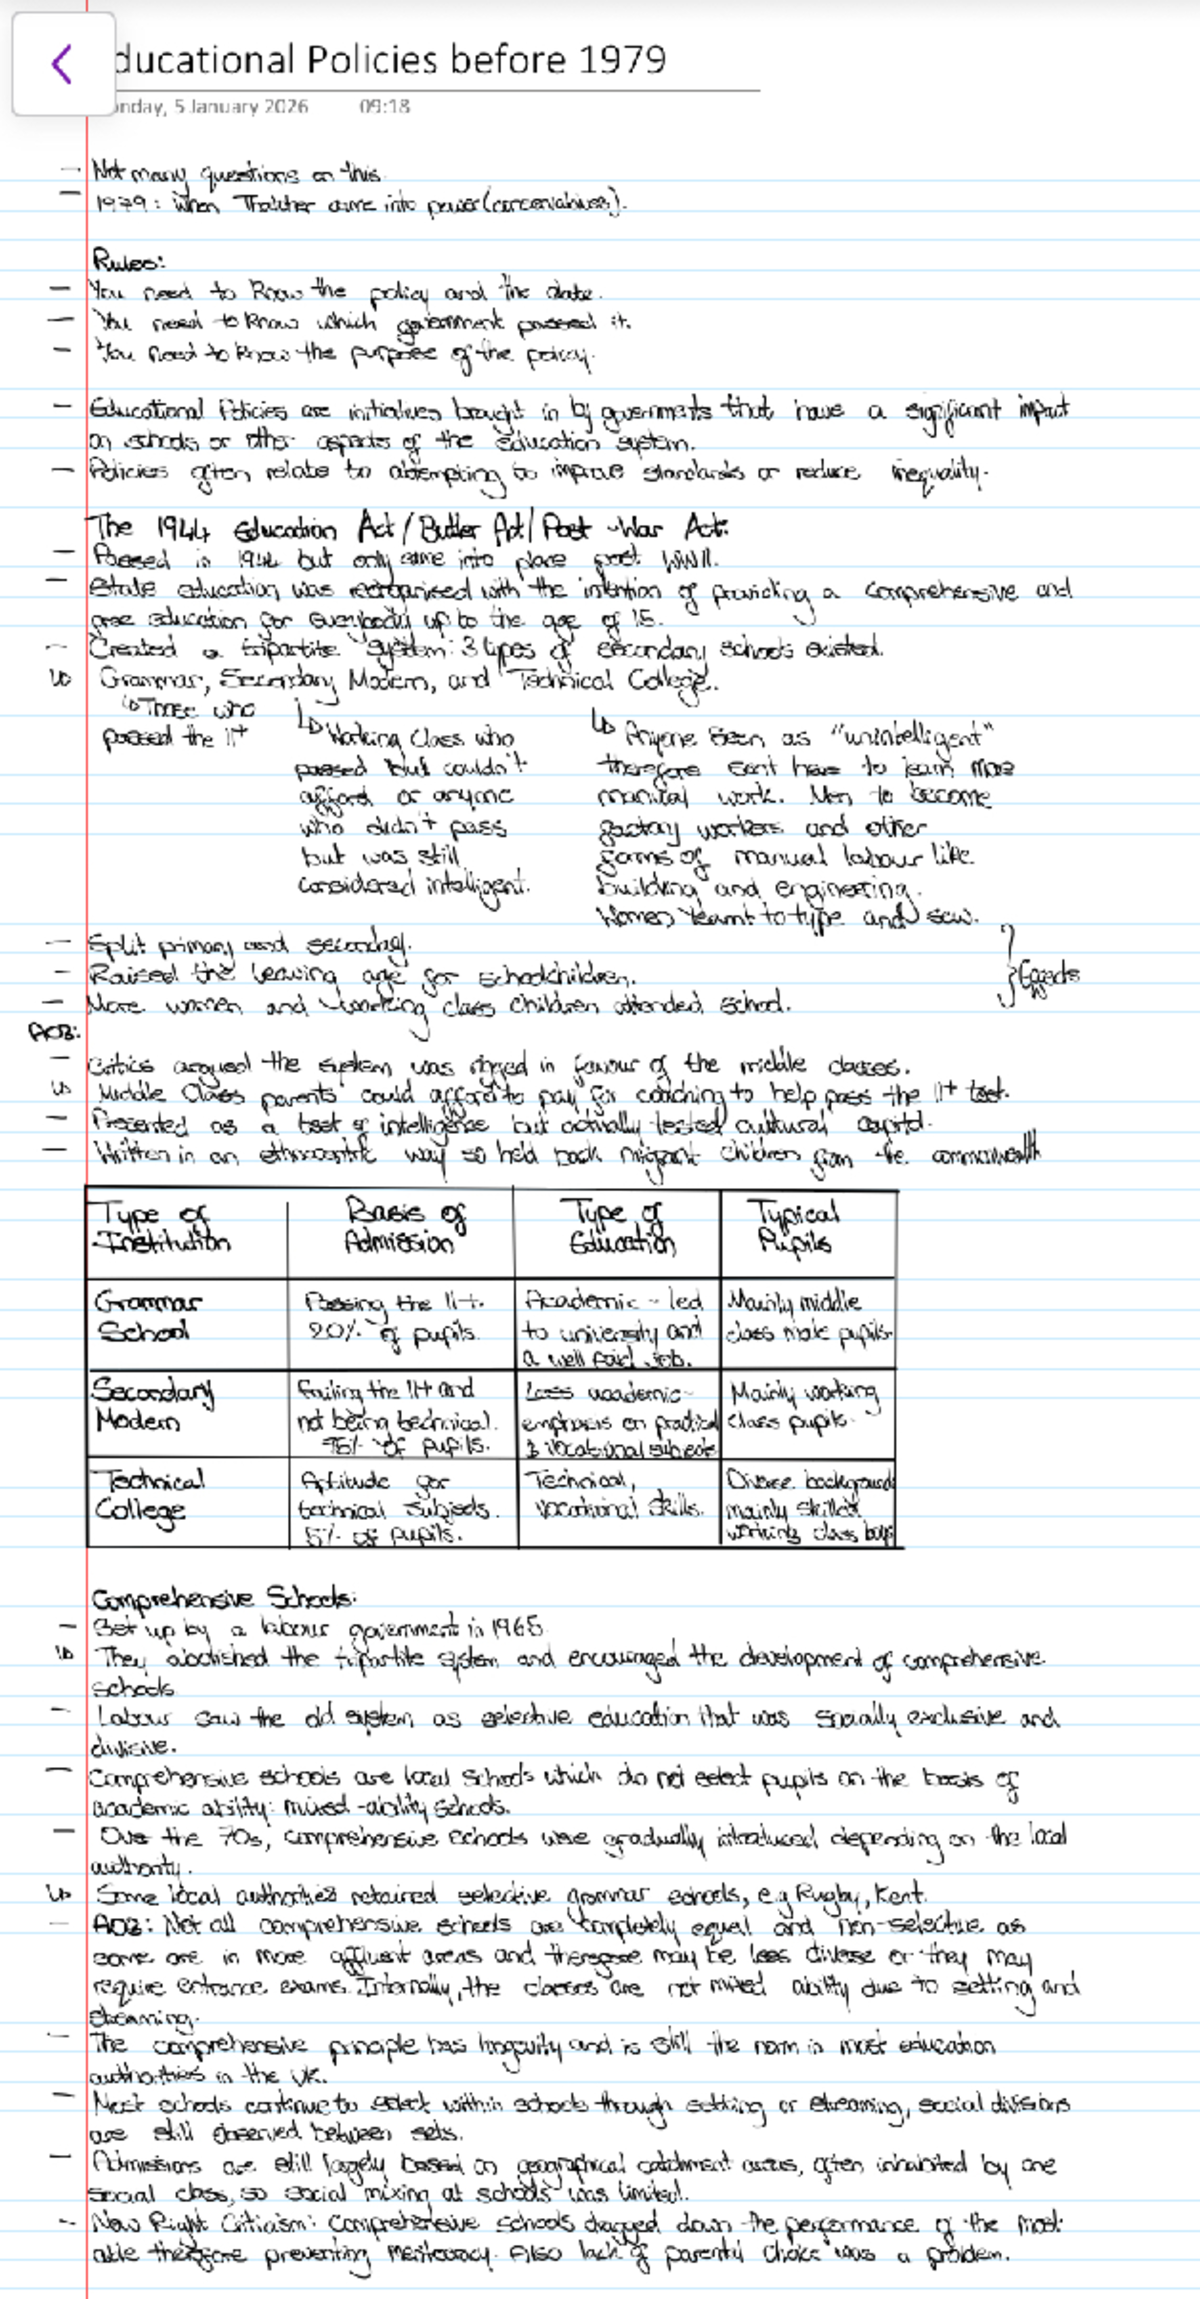 ducational Policies before 1979
onday, 5 January 2026 09:18
- Not many questions on this.
- 1979: When Thatcher came into power (conservatives).
Rules:
- You need to know the policy and the date.
- You need to know which government passed it.
- You need to know the purpose of the policy.
- Educational Policies are initiatives brought in by governments that have a significant impact
on schools or other aspects of the education system.
- Policies often relate to attempting to improve standards or reduce inequality.
The 1944 Education Act / Butler Act / Post-War Act:
- Passed in 1944 but only came into place post WWII.
- State education was reorganised with the intention of providing a comprehensive and
free education for everybody up to the age of 15.
- Created a tripartite system: 3 types of secondary schools existed.
↳ Grammar, Secondary Modern, and Technical College.
↳ Those who
passed the 11+
↳ Working Class who
passed but couldn't
afford or anyone
who didn't pass
but was still
considered intelligent.
↳ Anyone seen as "unintelligent"
therefore sent here to learn more
manual work. Men to become
factory workers and other
forms of manual labour like
building and engineering.
Women learnt to type and sew.
- Split primary and secondary.
- Raised the leaving age for schoolchildren.
- More women and working class children attended school.
} Goods
AO3:
- Critics argued the system was rigged in favour of the middle classes.
↳ Middle Class parents could afford to pay for coaching to help pass the 11+ test.
- Presented as a test of intelligence but actually tested cultural capital.
- Written in an ethnocentric way so held back migrant children from the commonwealth
Type of Institution | Basis of Admission | Type of Education | Typical Pupils
Grammar School | Passing the 11+. 20% of pupils. | Academic - led to university and a well paid job. | Mainly middle class male pupils.
Secondary Modern | Failing the 11+ and not being technical. 75% of pupils. | Less academic - emphasis on practical & vocational subjects | Mainly working class pupils.
Technical College | Aptitude for technical subjects. 5% of pupils. | Technical, vocational skills. | Diverse background mainly skilled working class boys
Comprehensive Schools:
- Set up by a labour government in 1965
↳ They abolished the tripartite system and encouraged the development of comprehensive
schools
- Labour saw the old system as selective education that was socially exclusive and
divisive.
- Comprehensive schools are local schools which do not select pupils on the basis of
academic ability: mixed-ability schools.
- Over the 70s, comprehensive schools were gradually introduced depending on the local
authority.
↳ Some local authorities retained selective grammar schools, e.g Rugby, Kent.
- AO3: Not all comprehensive schools are completely equal and non-selective as
some are in more affluent areas and therefore may be less diverse or they may
require entrance exams. Internally, the classes are not mixed ability due to setting and
streaming.
- The comprehensive principle has longevity and is still the norm in most education
authorities in the UK.
- Most schools continue to select within schools through setting or streaming, social divisions
are still observed between sets.
- Admissions are still largely based on geographical catchment areas, often inhabited by one
social class, so social mixing at schools was limited.
- New Right Criticism: Comprehensive schools dragged down the performance of the most
able therefore preventing meritocracy. Also lack of parental choice was a problem.